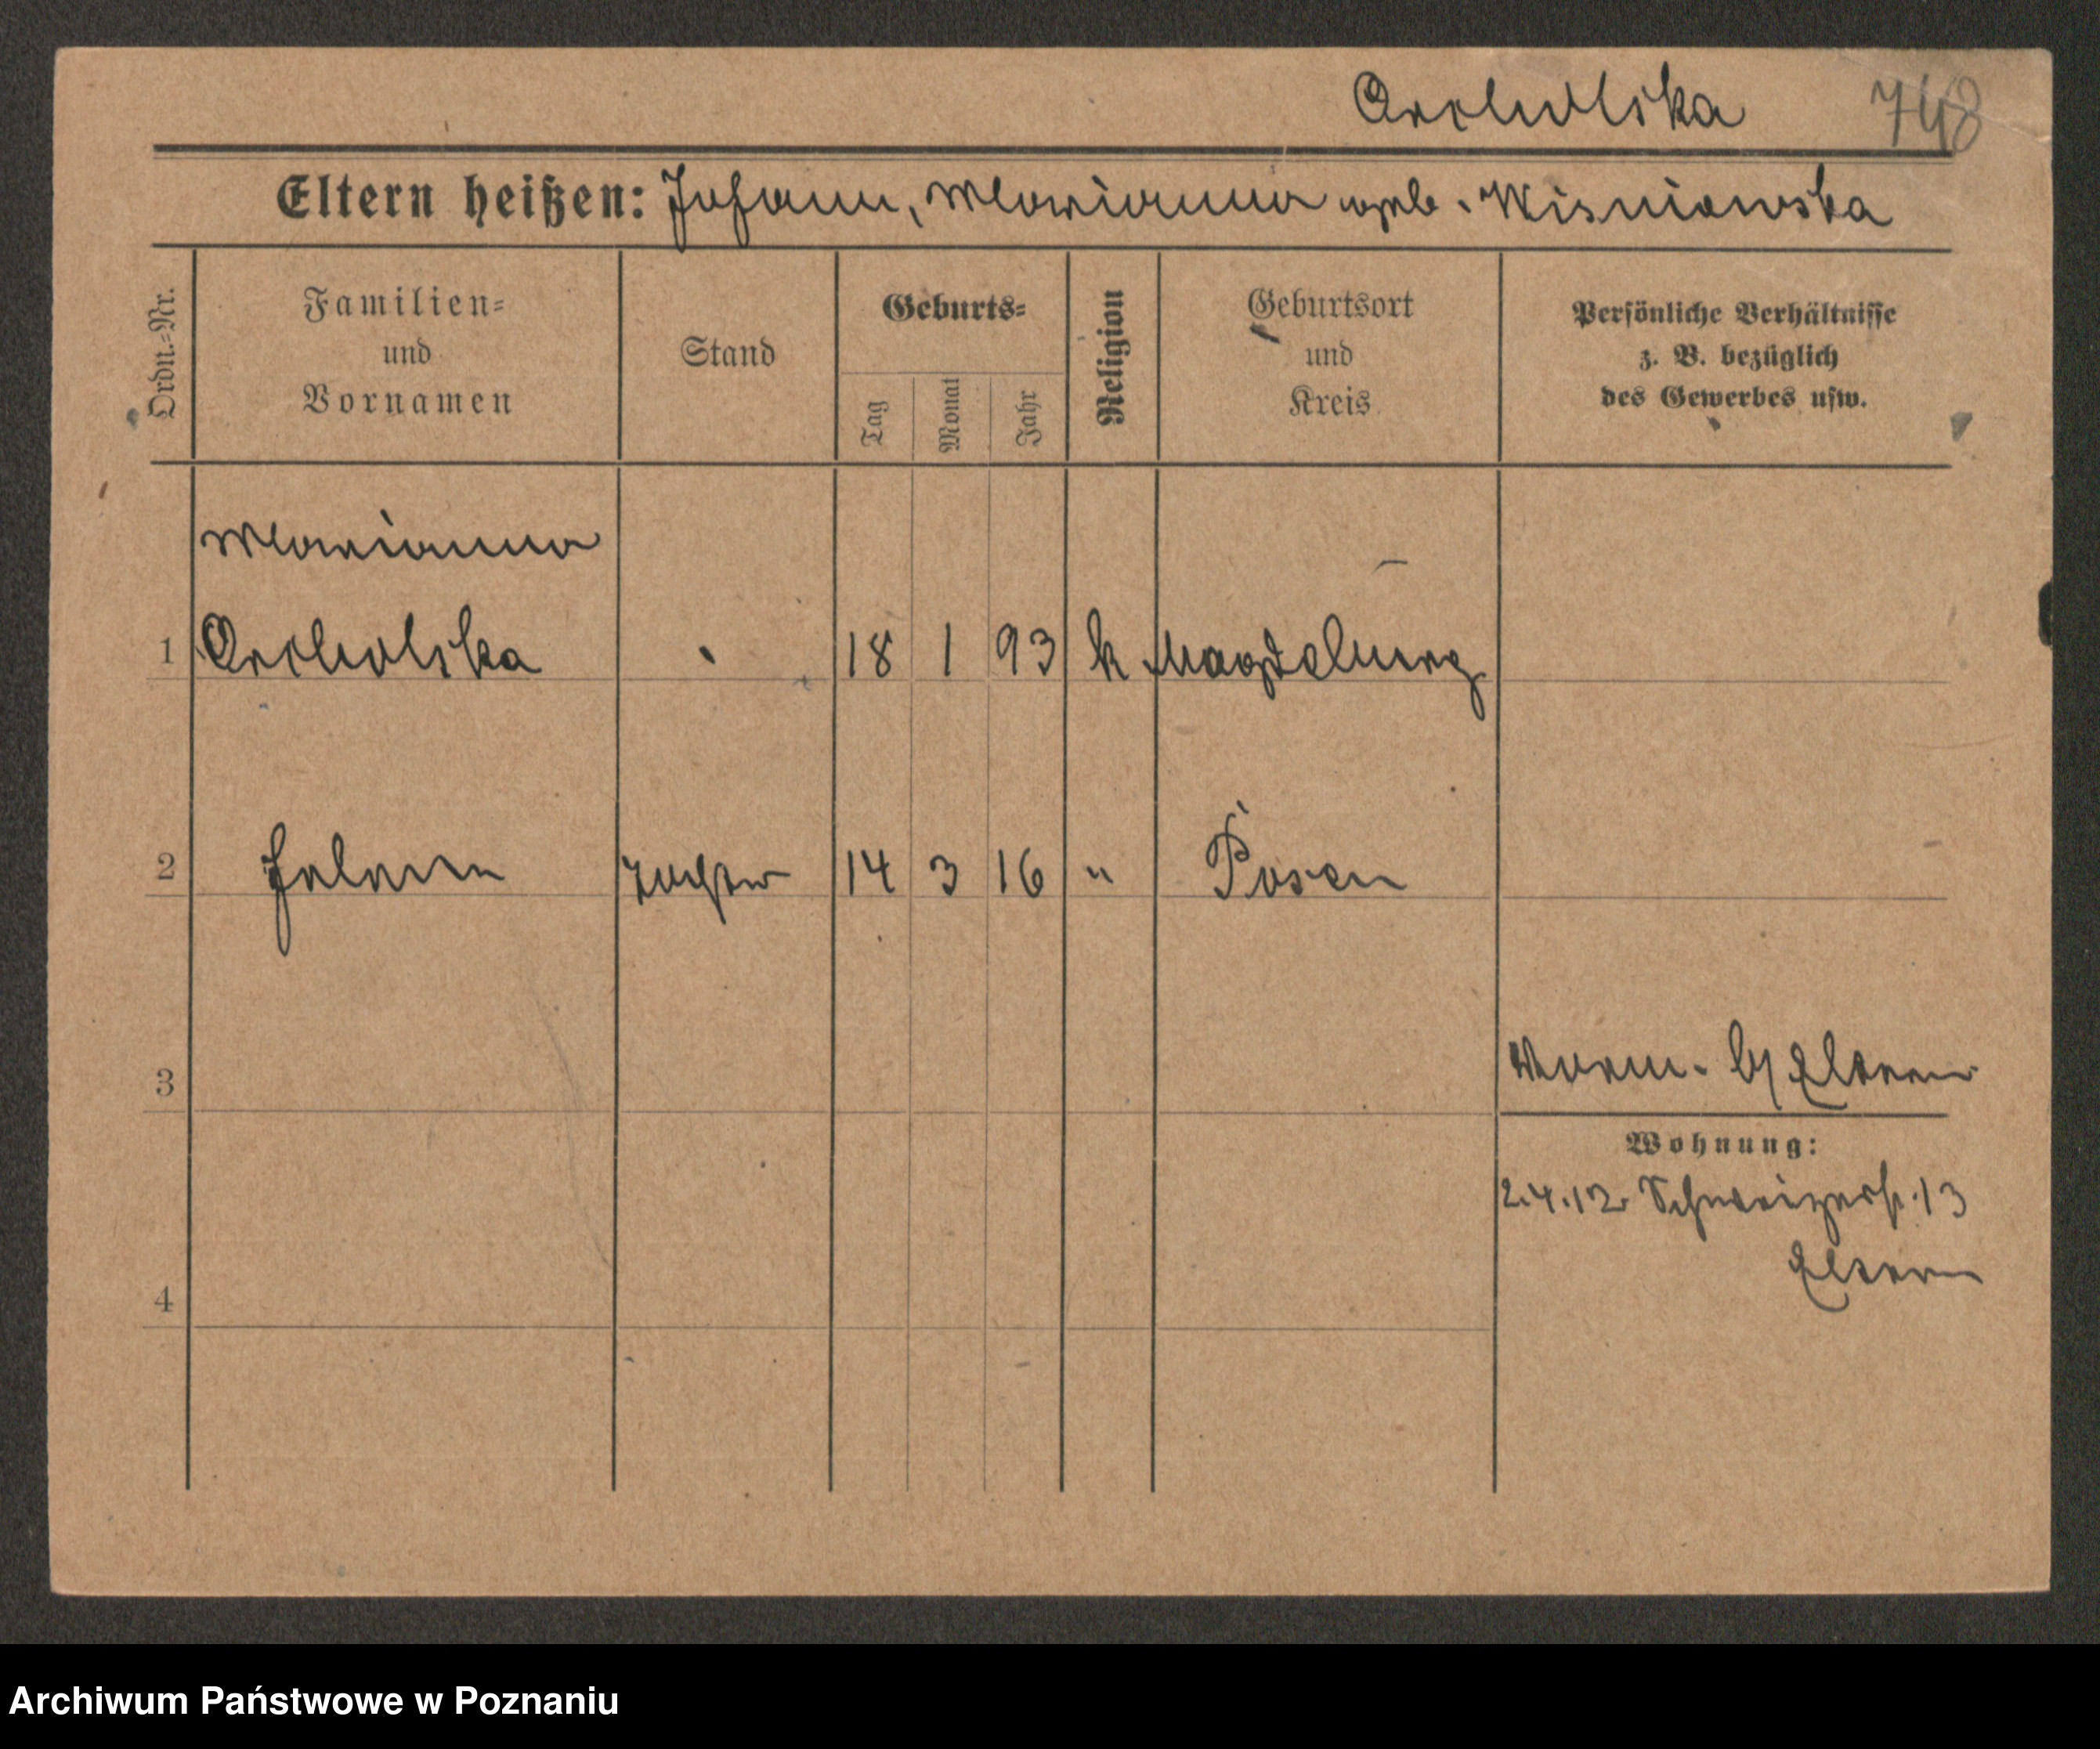 Archolska 748
Eltern heißen: Johann, Marianna geb. Wisniewska
Ordn.-Nr.
Familien-
und
Vornamen
Stand
Geburts-
Tag
Monat
Jahr
Religion
Geburtsort
und
Kreis
Persönliche Verhältnisse
z. B. bezüglich
des Gewerbes usw.
Marianna
1 Archolska 18 1 93 k Magdeburg
2 Helene Tochter 14 3 16 " Posen
3 b/ Eltern
Wohnung:
2.4.12 Schweizerstr. 13
Eltern
4
Archiwum Państwowe w Poznaniu